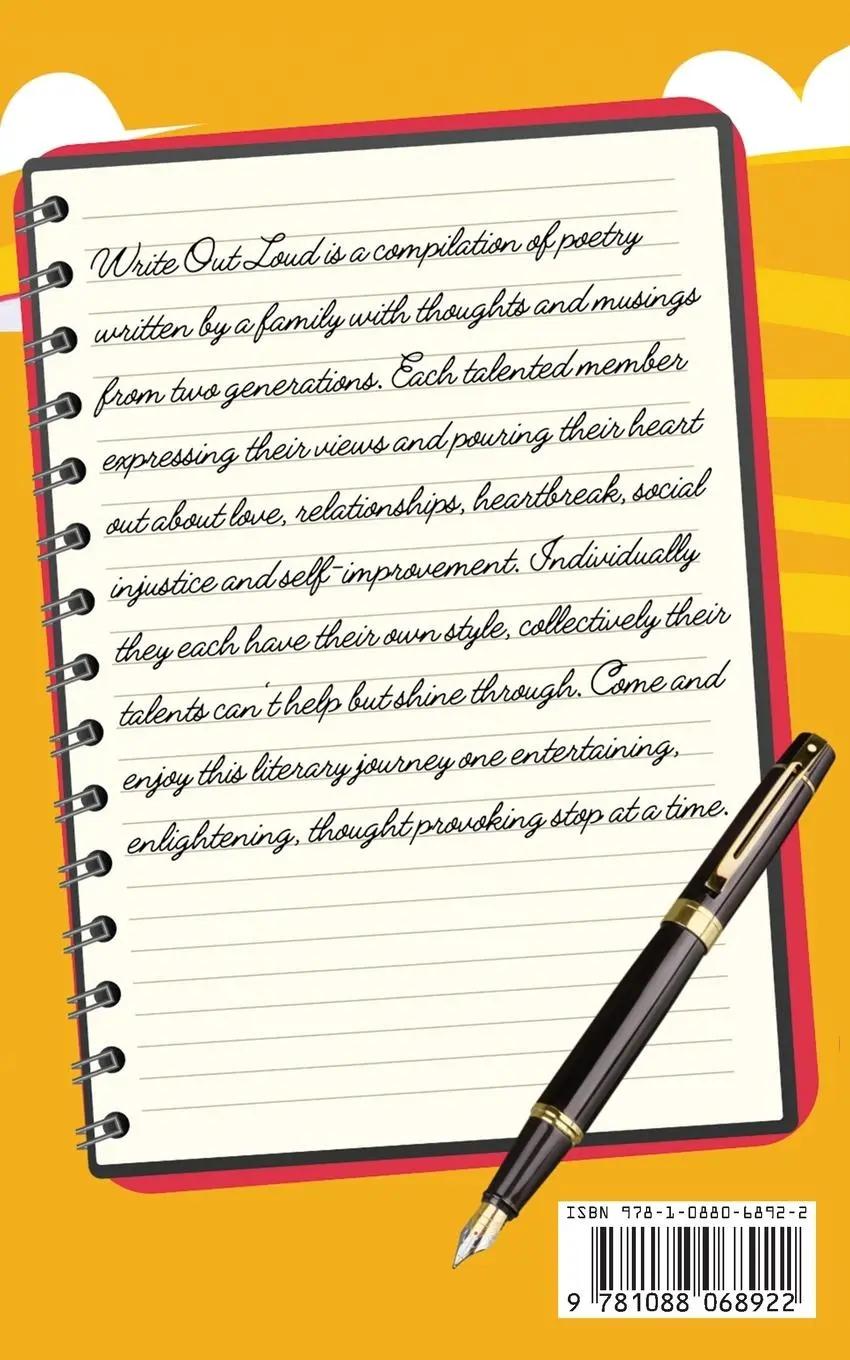 Write Out Loud is a compilation of poetry
written by a family with thoughts and musings
from two generations. Each talented member
expressing their views and pouring their heart
out about love, relationships, heartbreak, social
injustice and self-improvement. Individually
they each have their own style, collectively their
talents can't help but shine through. Come and
enjoy this literary journey one entertaining,
enlightening, thought provoking stop at a time.
ISBN 978-1-0880-6892-2
9 781088 068922